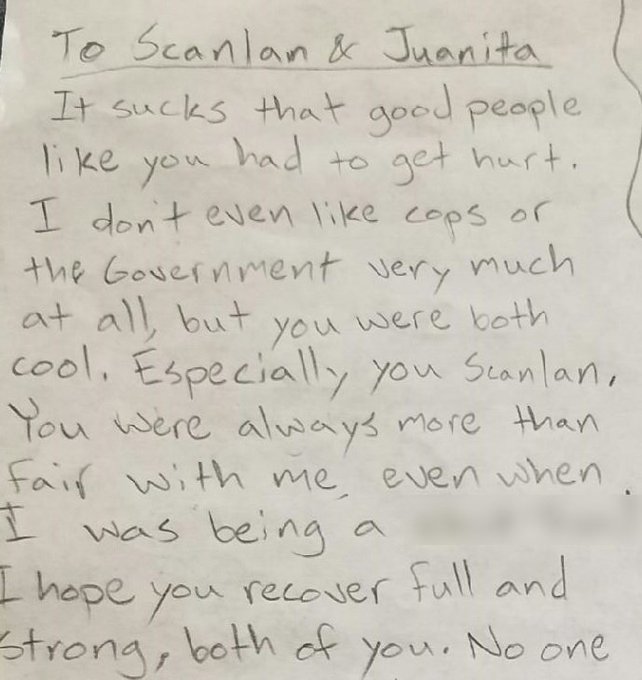 To Scanlan & Juanita
It sucks that good people
like you had to get hurt.
I don't even like cops or
the Government very much
at all, but you were both
cool. Especially you Scanlan.
You were always more than
fair with me, even when
I was being a
I hope you recover full and
strong, both of you. No one